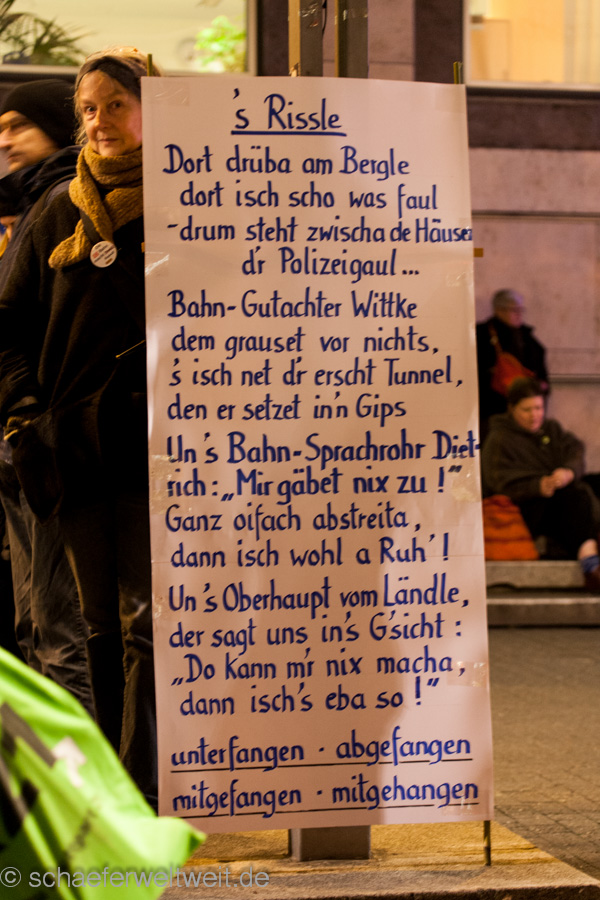 's Rissle
Dort drüba am Bergle
dort isch scho was faul
-drum steht zwischa de Häuser
d'r Polizeigaul...
Bahn-Gutachter Wittke
dem grauset vor nichts,
's isch net d'r erscht Tunnel,
den er setzet in'n Gips
Un's Bahn-Sprachrohr Diet-
rich: „Mir gäbet nix zu!"
Ganz oifach abstreita,
dann isch wohl a Ruh'!
Un's Oberhaupt vom Ländle,
der sagt uns in's G'sicht:
„Do kann m'r nix macha,
dann isch's eba so!"
unterfangen · abgefangen
mitgefangen · mitgehangen
© schaeferweltweit.de